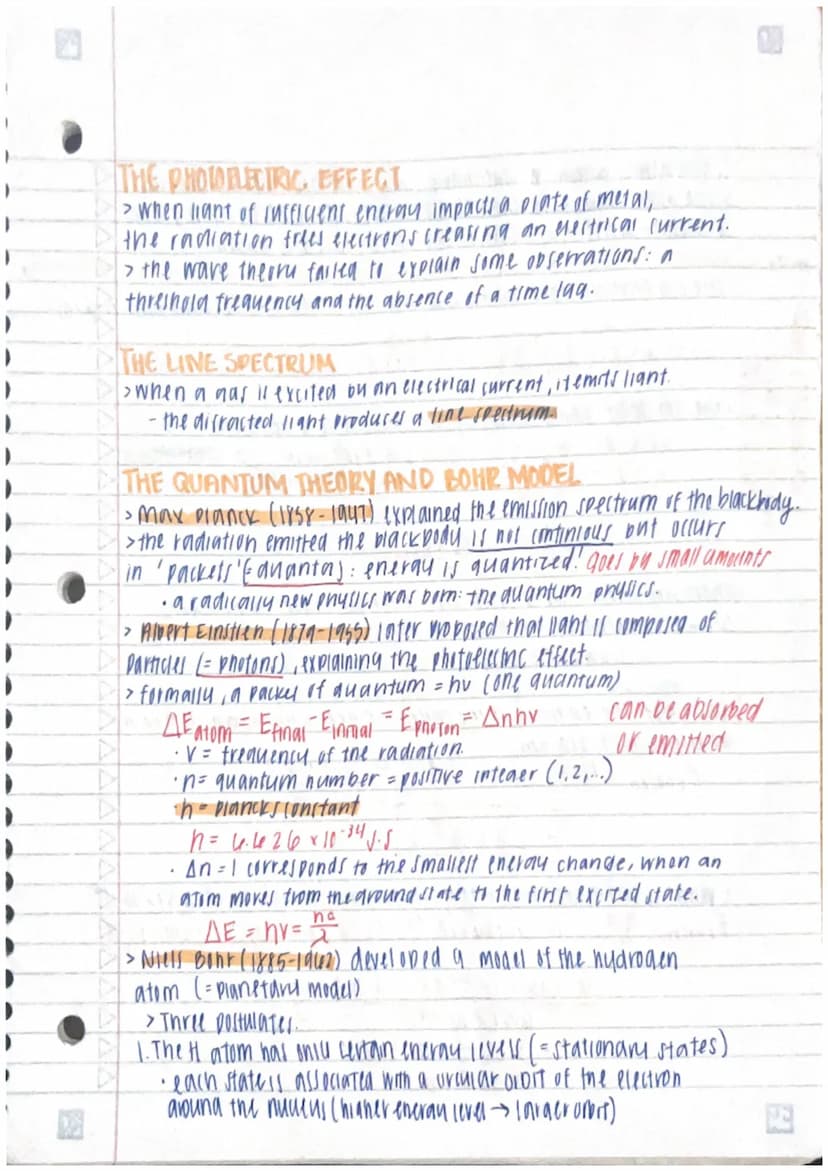 THE PHOTOELECTRIC EFFECT
> when light of sufficient energy impacts a plate of metal,
the radiation frees electrons creating an electrical current.
> the wave theory failed to explain some observations: a
threshold frequency and the absence of a time lag.
THE LINE SPECTRUM
> when a gas is excited by an electrical current, it emits light.
- the difracted light produces a line spectrum.
THE QUANTUM THEORY AND BOHR MODEL
> Max Planck (1858-1947) explained the emission spectrum of the blackbody.
> the radiation emitted the blackbody is not continious but occurs
in 'packets' (=quanta): energy is quantized! goes by small amounts
• a radically new physics was born: the quantum physics.
> Albert Einstien (1879-1955) later proposed that light is composed of
particles (= photons), explaining the photoelectric effect.
> formally, a packet of quantum = hν (one quantum)
ΔEatom = Efinal - Einitial = Ephoton = Δnhν can be absorbed
or emitted
• ν = frequency of the radiation.
• n = quantum number = positive integer (1,2,...)
h = plancks constant
h = 6.626 x 10⁻³⁴ J·S
• Δn = 1 corresponds to the smallest energy change, when an
atom moves from the ground state to the first excited state.
ΔE = hν = hc/λ
> Niels Bohr (1885-1962) developed a model of the hydrogen
atom (= planetary model)
> Three postulates.
1. The H atom has only certain energy levels (= stationary states)
• each state is associated with a circular orbit of the electron
around the nucleus (higher energy level → larger orbit)